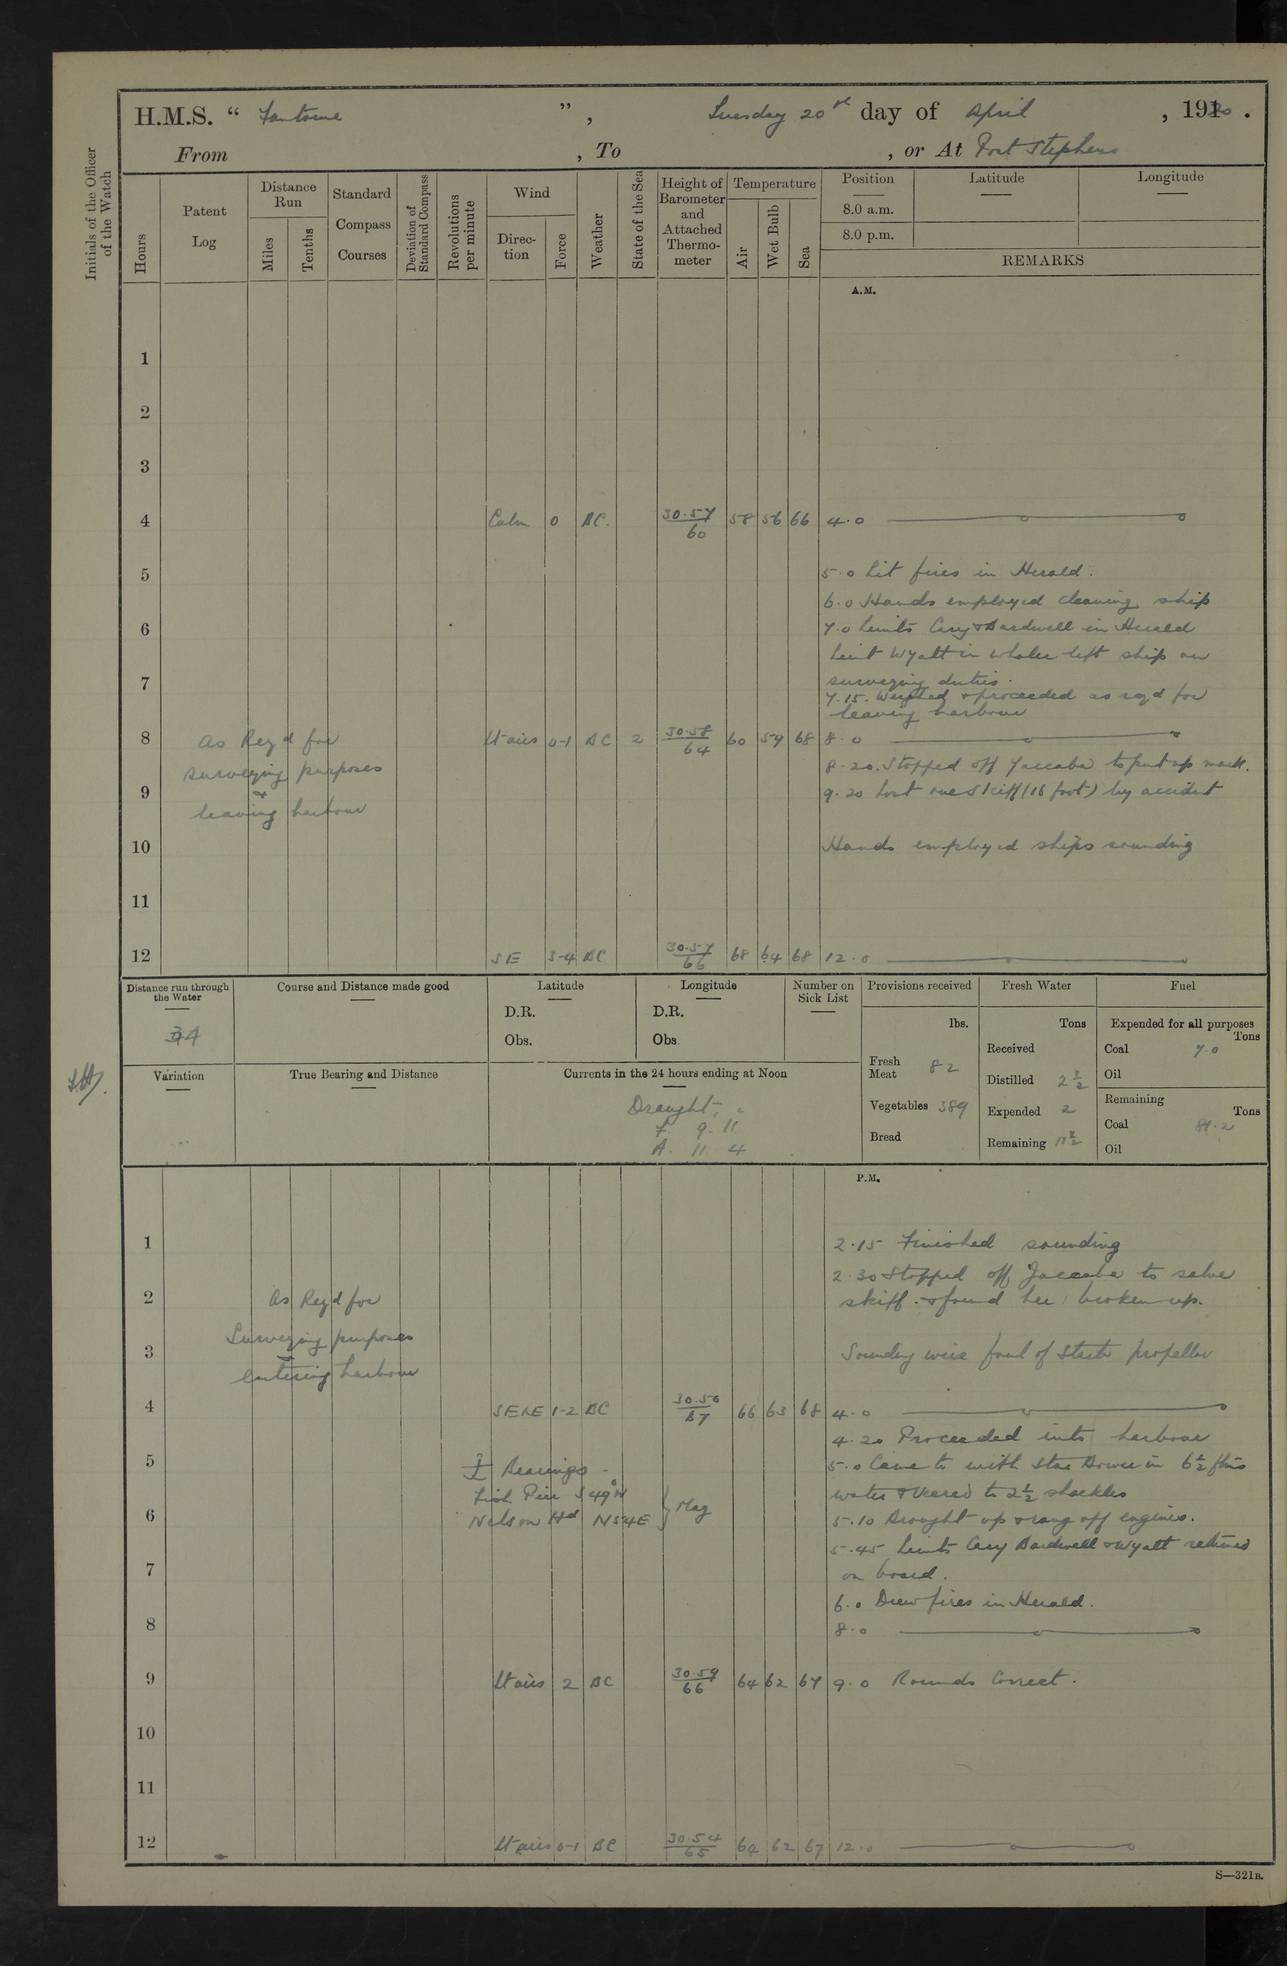 H.M.S. “ Fantome ”, Tuesday 20th day of April , 1920 .
From , To , or At Port Stephens
Initials of the Officer of the Watch
Hours
Patent Log
Distance Run
Miles
Tenths
Standard Compass Courses
Deviation of Standard Compass
Revolutions per minute
Wind
Direction
Force
Weather
State of the Sea
Height of Barometer and Attached Thermometer
Temperature
Air
Wet Bulb
Sea
Position Latitude Longitude
8.0 a.m.
8.0 p.m.
REMARKS
A.M.
1
2
3
4 Calm 0 BC. 30.57/60 58 56 66 4.0
5 5.0 Lit fires in Herald.
6.0 Hands employed cleaning ship
6 7.0 Lieuts Cary & Bardwell in Herald
Lieut Wyatt in whaler left ship on
7 surveying duties.
7.15. Weighed & proceeded as reqd for
leaving harbour
8 As Reqd for Lt airs 0-1 BC 2 30.58/64 60 59 68 8.0
surveying purposes 8.20. Stopped off Yaccaba to put up mark.
9 & 9.20 Lost one skiff (16 foot) by accident
leaving harbour
10 Hands employed ships sounding
11
12 SE 3-4 BC 30.57/66 68 64 68 12.0
Distance run through the Water
34
Course and Distance made good
Latitude
D.R.
Obs.
Longitude
D.R.
Obs.
Number on Sick List
Provisions received
lbs.
Fresh Meat 82
Vegetables 389
Bread
Fresh Water
Tons
Received
Distilled 2½
Expended 2
Remaining
Fuel
Expended for all purposes
Tons
Coal 7.0
Oil
Remaining
Tons
Coal
Oil
Variation
True Bearing and Distance
Currents in the 24 hours ending at Noon
Draught
F. 9. 11
A. 11 4
P.M.
1 2.15 Finished sounding
2.30 Stopped off Yaccaba to salve
2 As Reqd for skiff. & found her broken up.
Surveying purposes
3 & Sounding wire foul of Starb propellor
entering harbour
4 SExE 1-2 BC 30.50/67 66 63 68 4.0
4.20 Proceeded into harbour
5 Bearings 5.0 Came to with Star Bower in 6½ fms
Fish Pier S49°W } Mag water & veered to 2½ shackles
6 Nelson Hd N54E 5.10 Brought up & rang off engines.
5.45 Lieuts Cary Bardwell & Wyatt returned
7 on board.
6.0 Drew fires in Herald.
8 8.0
9 Lt airs 2 BC 30.59/66 64 62 67 9.0 Rounds Correct.
10
11
12 Lt airs 0-1 BC 30.54/65 64 62 67 12.0
S—321B.